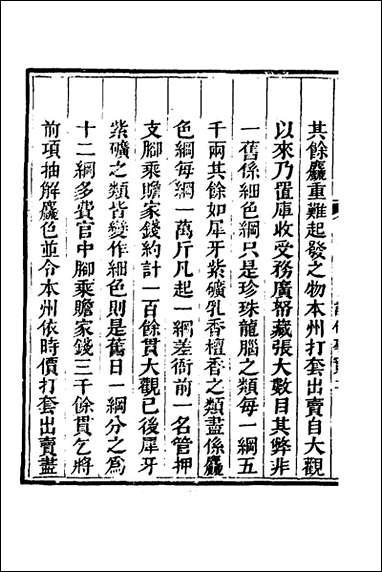 其餘麤重難起發之物本州打套出賣自大觀
以來乃置庫收受務廣帑藏張大數目其弊非
一舊係細色綱只是珍珠龍腦之類每一綱五
千兩其餘如犀牙紫礦乳香檀香之類盡係麤
色綱每綱一萬斤凡起一綱差衙前一名管押
支腳乘贍家錢約計一百餘貫大觀已後犀牙
紫礦之類皆變作細色則是舊日一綱分之為
十二綱多費官中腳乘贍家錢三千餘貫乞將
前項抽解麤色並令本州依時價打套出賣盡